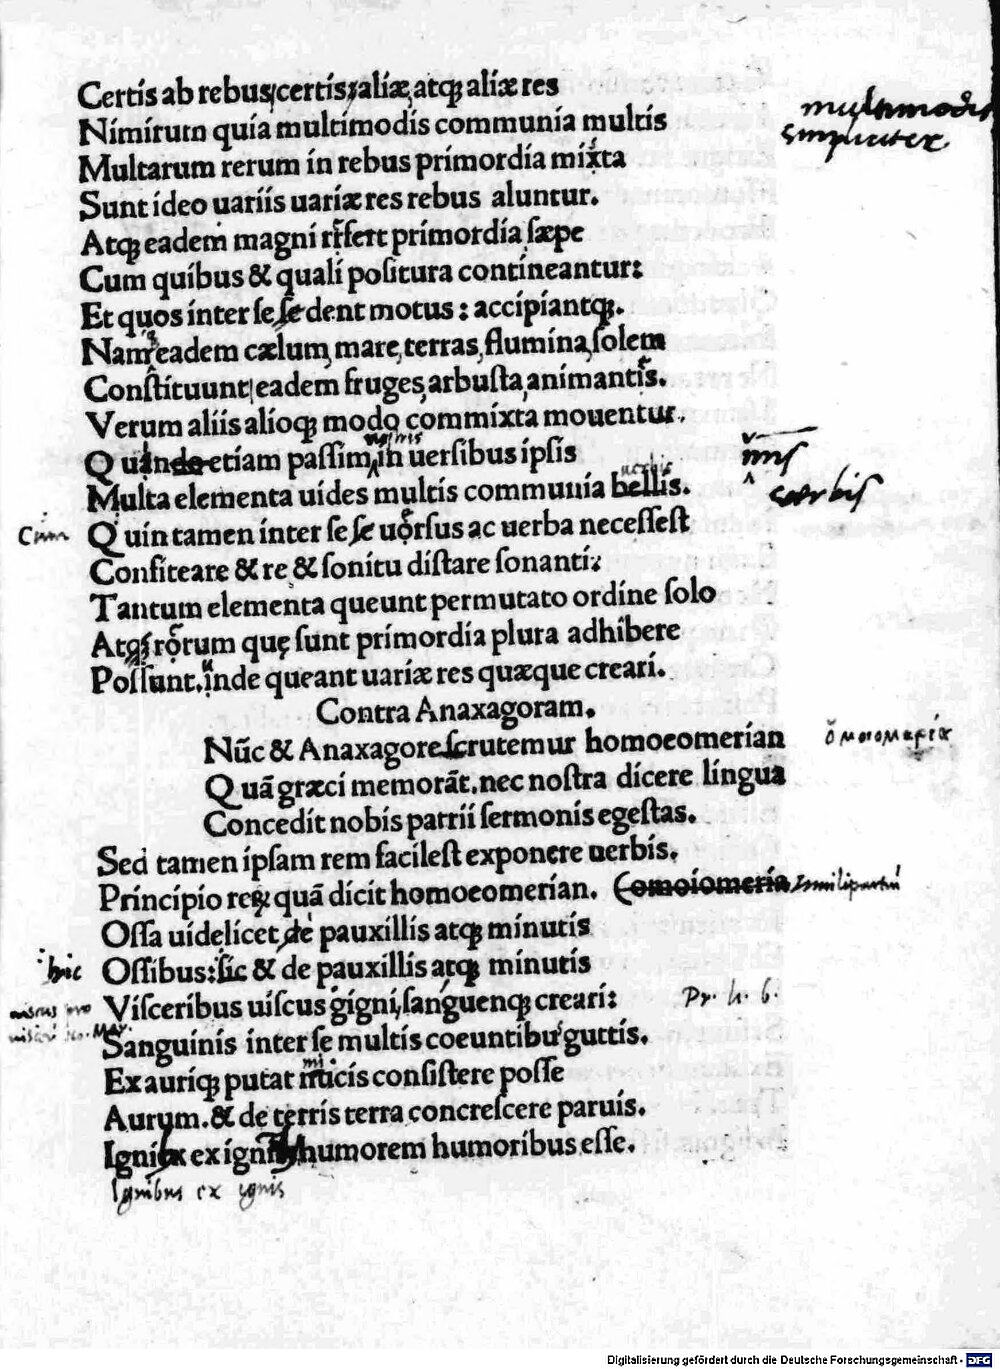 Certis ab rebus, certis, aliæ, atq; aliæ res
multimodis
Nimirum quia multimodis communia multis
simpliciter
Multarum rerum in rebus primordia mixta
Sunt ideo uariis uariæ res rebus aluntur.
Atq; eadem magni primordia sæpe
Cum quibus & quali positura contineantur:
Et quos inter se se dent motus: accipiantq;.
Nam eadem cælum, mare, terras, flumina, solem
Constituunt, eadem fruges, arbusta, animantis.
Verum aliis alioq; modo commixta mouentur.
Quando etiam passim in uersibus ipsis
Multa elementa uides multis communia bellis.
uerbis
uerbis
Cum
Quin tamen inter se se uorsus ac uerba necessest
Confiteare & re & sonitu distare sonanti:
Tantum elementa queunt permutato ordine solo
At rorum quę sunt primordia plura adhibere
Possunt. inde queant uariæ res quæque creari.
Contra Anaxagoram.
Nūc & Anaxagore scrutemur homoeomerian
ὁμοιομερία
Quā græci memorāt. nec nostra dicere lingua
Concedit nobis patrii sermonis egestas.
Sed tamen ipsam rem facilest exponere uerbis.
Principio rerum quā dicit homoeomerian. (omoiomeria
Ossa uidelicet de pauxillis atq; minutis
hic
Ossibus: sic & de pauxillis atq; minutis
Visceribus uiscus gigni, sanguenq; creari:
Pr. h. 6.
Sanguinis inter se multis coeuntibus guttis.
Ex auriq; putat micis consistere posse
Aurum. & de terris terra concrescere paruis.
Ignib; ex igni humorem humoribus esse.
Ignibus ex ignis
Digitalisierung gefördert durch die Deutsche Forschungsgemeinschaft - DFG